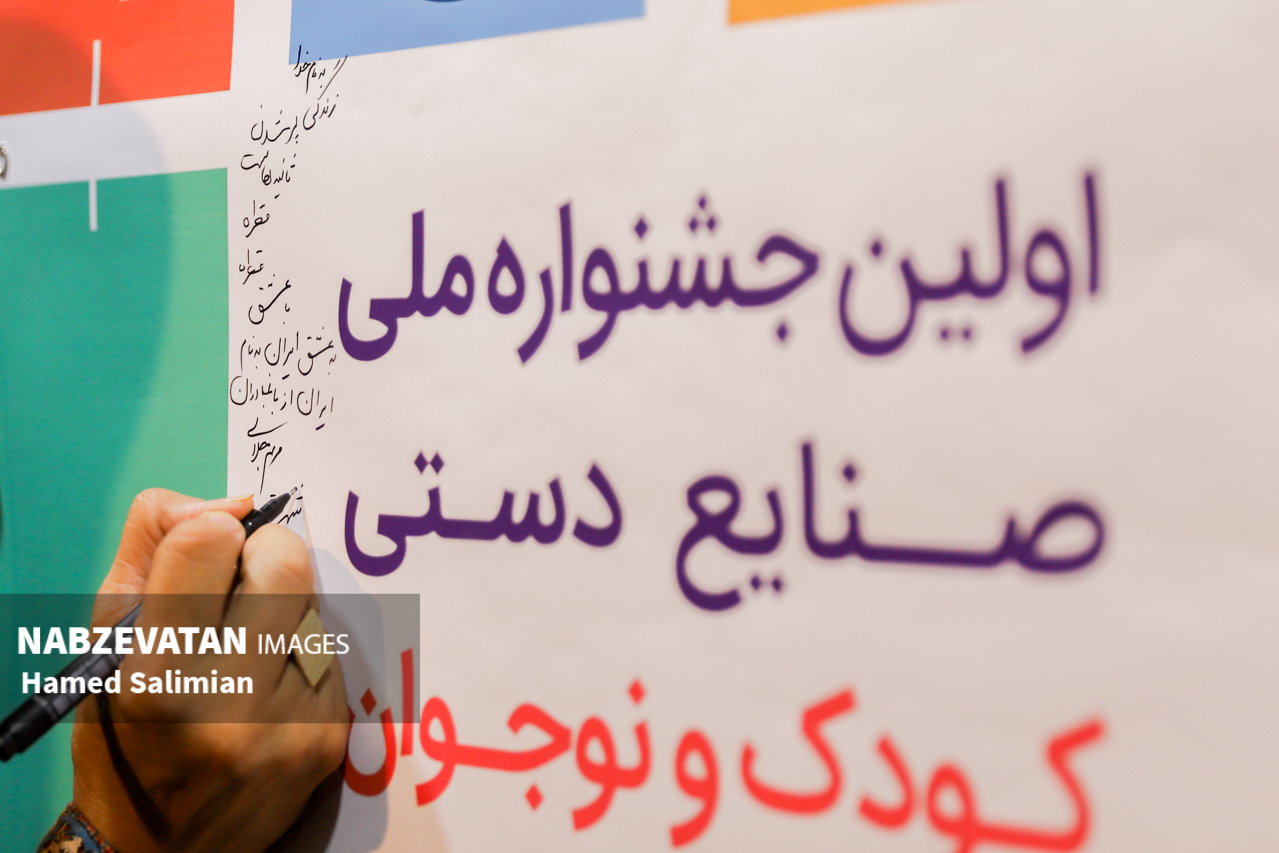 به نام خدا
زندگی پر شدن
ثانیه‌هاست
قطره
قطره
با عشق
به عشق ایران به نام
ایران از باغبادران
مریم جلالی
اولین جشنواره ملی
صنایع دستی
کودک و نوجوان
NABZEVATAN IMAGES
Hamed Salimian